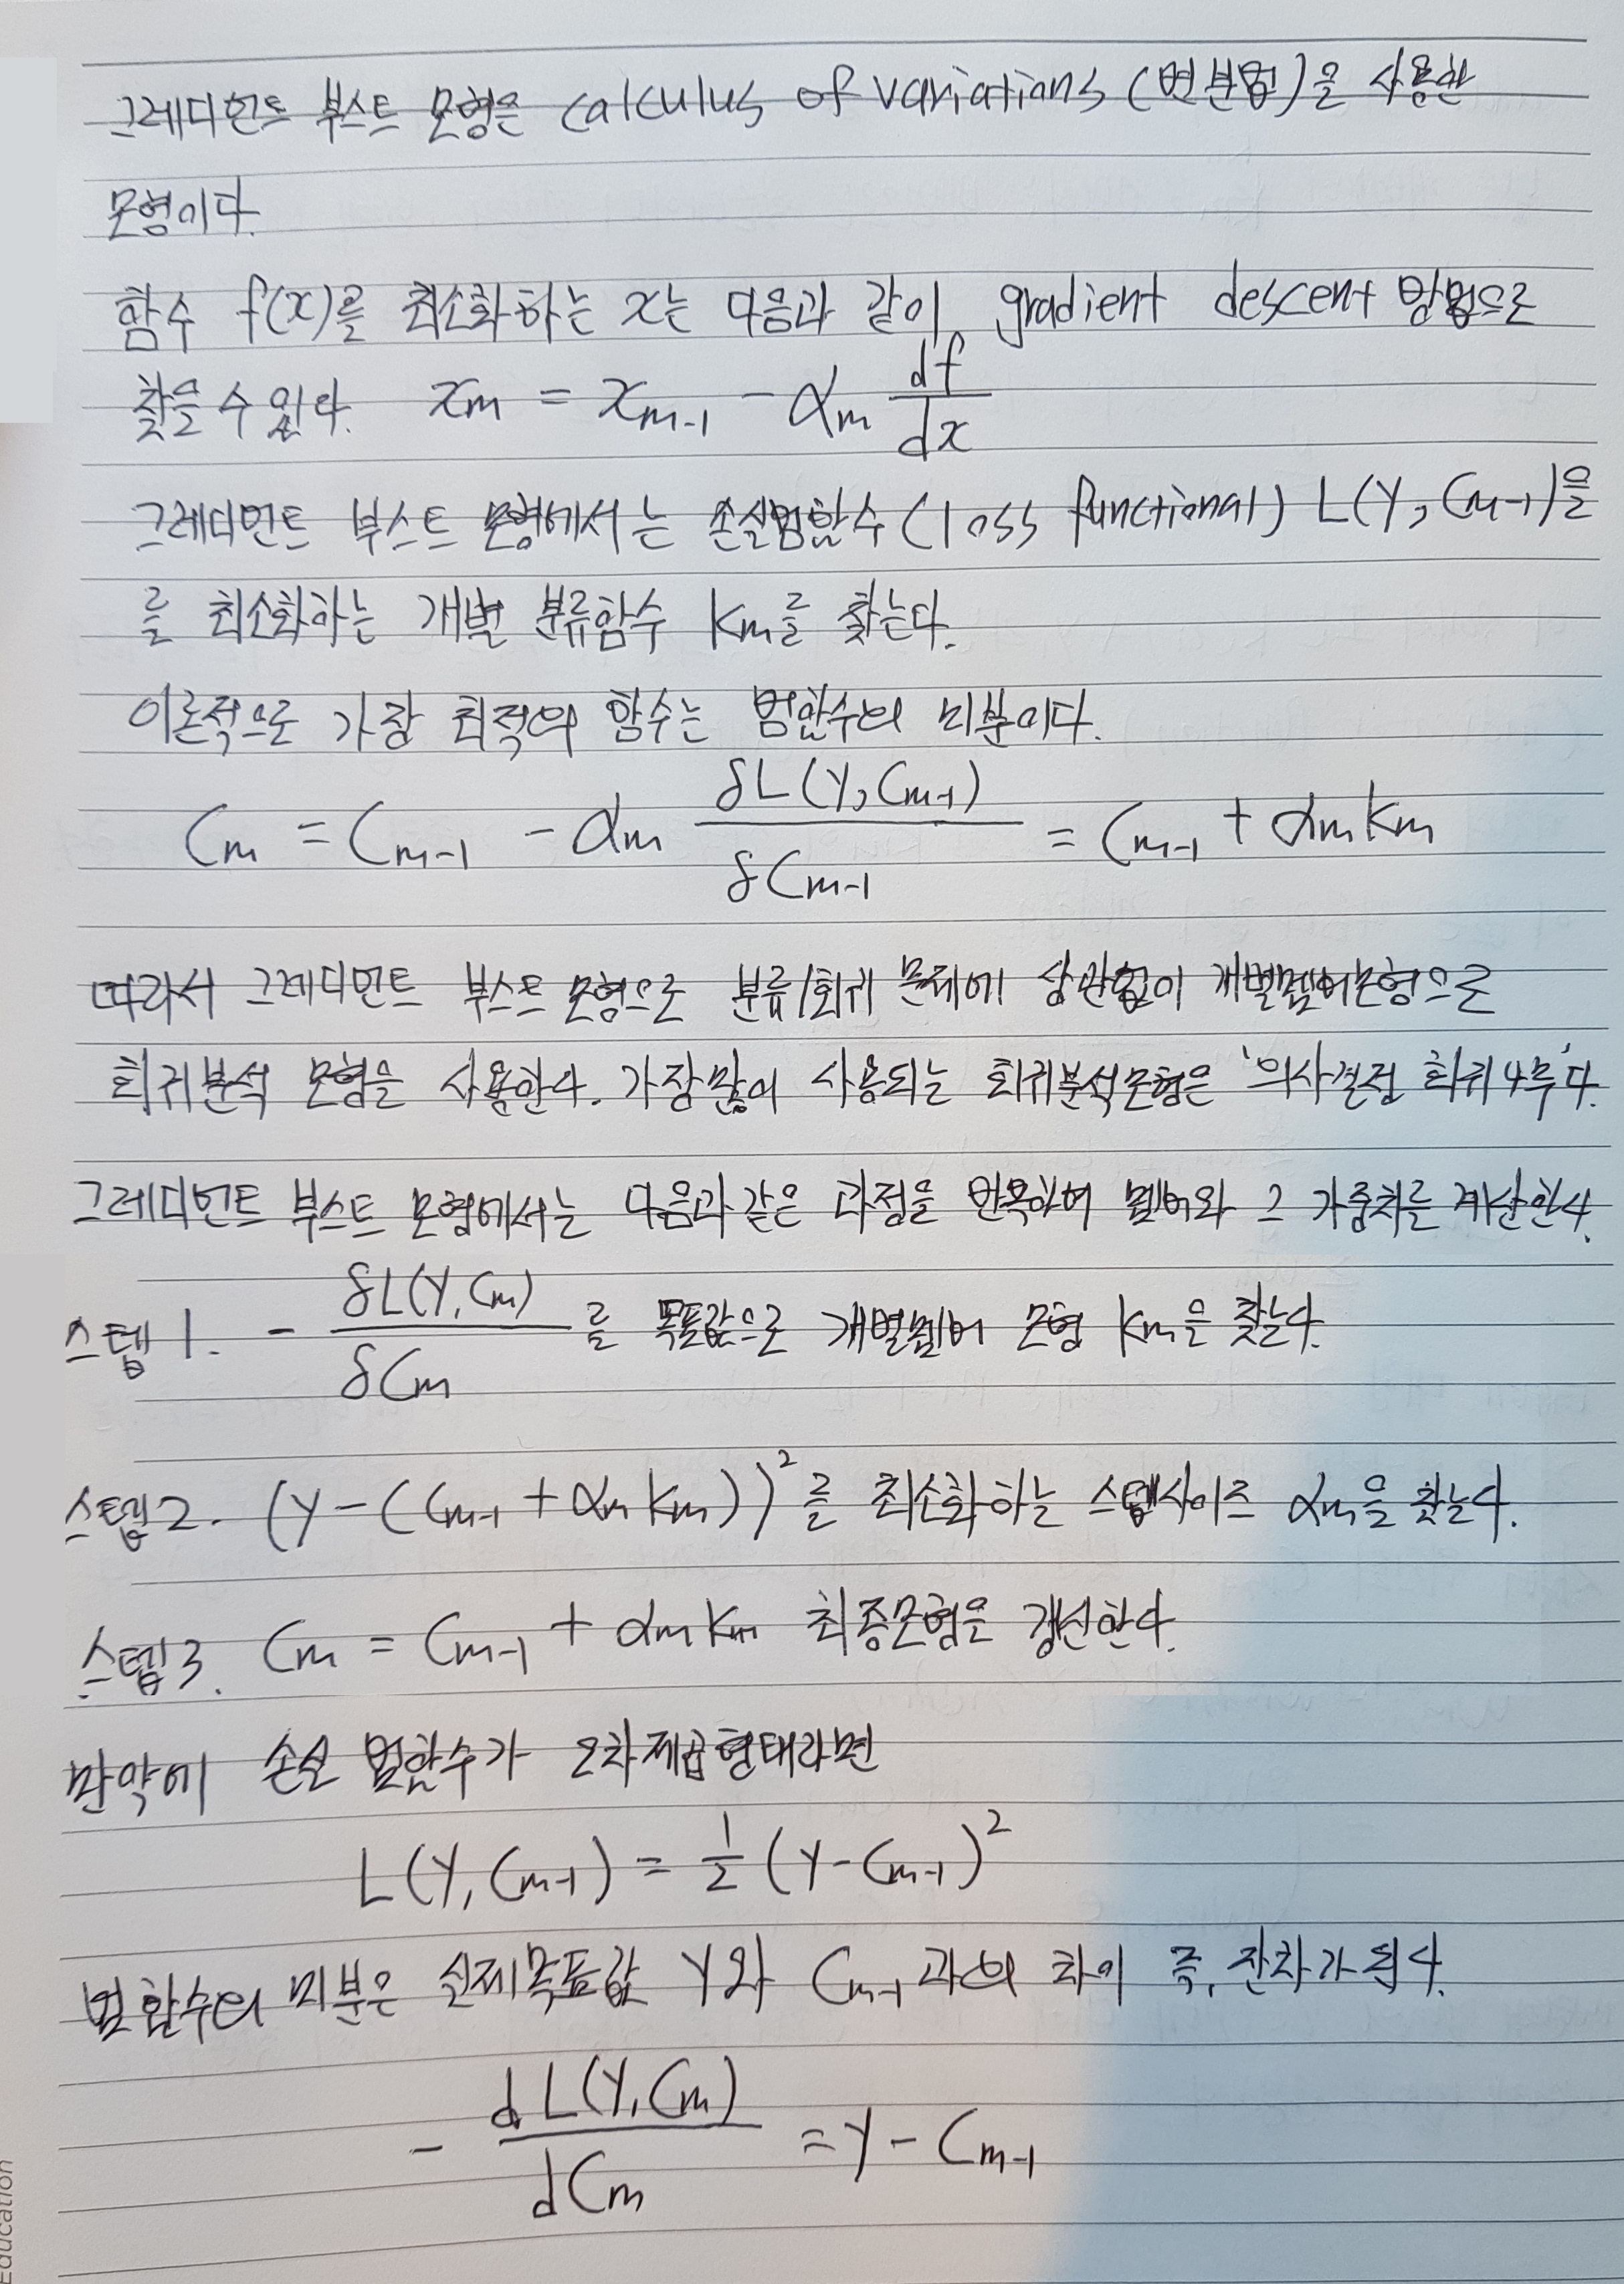 그레디언트 부스트 모형은 calculus of variations (변분법)을 사용한
모형이다.
함수 f(x)를 최소화하는 x는 다음과 같이 gradient descent 방법으로
찾을 수 있다. xₘ = xₘ₋₁ - αₘ df/dx
그레디언트 부스트 모형에서는 손실범함수 (loss functional) L(Y, Cₘ₋₁)을
를 최소화하는 개별 분류함수 kₘ를 찾는다.
이론적으로 가장 최적의 함수는 범함수의 미분이다.
Cₘ = Cₘ₋₁ - αₘ δL(Y, Cₘ₋₁)/δCₘ₋₁ = Cₘ₋₁ + αₘkₘ
따라서 그레디언트 부스트 모형으로 분류/회귀 문제에 상관없이 개별멤버모형으로
회귀분석 모형을 사용한다. 가장많이 사용되는 회귀분석모형은 '의사결정 회귀나무'다.
그레디언트 부스트 모형에서는 다음과 같은 과정을 반복하여 멤버와 그 가중치를 계산한다.
스텝 1. - δL(Y, Cₘ)/δCₘ 를 목표값으로 개별멤버 모형 kₘ을 찾는다.
스텝2. (y - (Cₘ₋₁ + αₘkₘ))² 를 최소화하는 스텝사이즈 αₘ을 찾는다.
스텝3. Cₘ = Cₘ₋₁ + αₘkₘ 최종모형은 갱신한다.
만약에 손실 범함수가 오차제곱형태라면
L(Y, Cₘ₋₁) = 1/2 (Y - Cₘ₋₁)²
범함수의 미분은 실제목표값 Y와 Cₘ₋₁과의 차이 즉, 잔차가 된다.
- dL(Y, Cₘ)/dCₘ = Y - Cₘ₋₁
Education